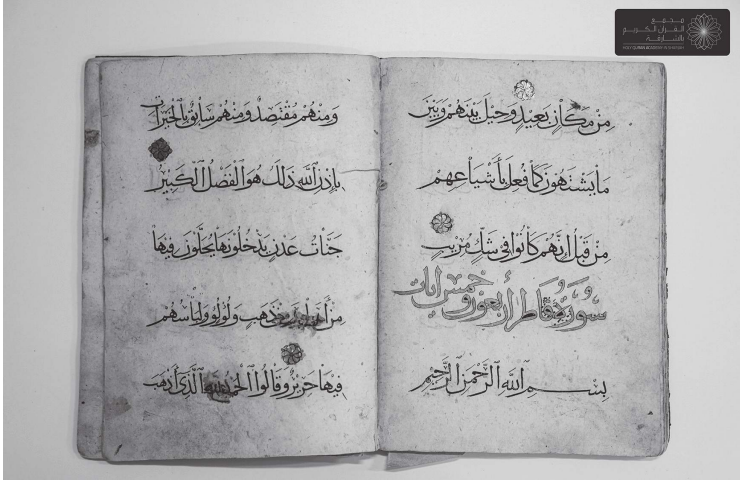 مجمع
القرآن الكريم
بالشارقة
HOLY QURAN ACADEMY IN SHARJAH
مِنْ مَكَانٍ بَعِيدٍ وَحِيلَ بَيْنَهُمْ وَبَيْنَ
مَا يَشْتَهُونَ كَمَا فُعِلَ بِأَشْيَاعِهِمْ
مِنْ قَبْلُ إِنَّهُمْ كَانُوا فِي شَكٍّ مُرِيبٍ
سورة فاطر أربعون وخمس آيات
بِسْمِ اللَّهِ الرَّحْمَنِ الرَّحِيمِ
وَمِنْهُمْ مُقْتَصِدٌ وَمِنْهُمْ سَابِقٌ بِالْخَيْرَاتِ
بِإِذْنِ اللَّهِ ذَلِكَ هُوَ الْفَضْلُ الْكَبِيرُ
جَنَّاتُ عَدْنٍ يَدْخُلُونَهَا يُحَلَّوْنَ فِيهَا
مِنْ أَسَاوِرَ مِنْ ذَهَبٍ وَلُؤْلُؤٍ وَلِبَاسُهُمْ
فِيهَا حَرِيرٌ وَقَالُوا الْحَمْدُ لِلَّهِ الَّذِي أَذْهَبَ